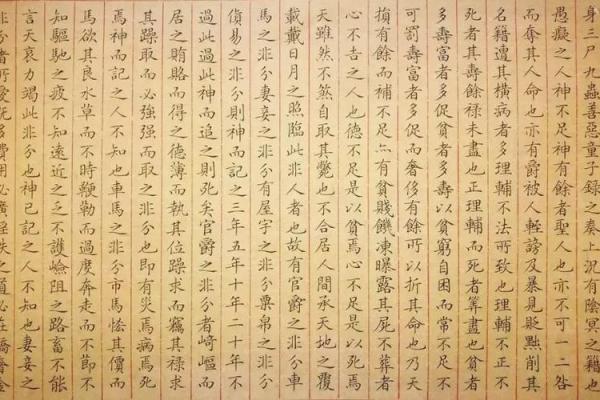 身三尸九蟲善惡童子錄之奏上況有陰冥之籍也
愚癡之人神不足神有餘者聖人也亦不可一二咎
而奪其人命也亦有爵被人輕謗及暴見貶黜削其
名籍遭其橫病者多理輔不法所致也理輔不正不
死者其壽餘祿未盡也正理輔而死者筭盡也貧者
多壽富者多促貧者多壽以貧窮自困而常不足不
可罰壽富者多促而奢侈有餘所以折其命也乃天
損有餘而補不足亦有貧賤饑凍曝露其屍不葬者
心不吉之人也德不足是以貧焉心不足是以死焉
天雖然不煞自取其斃也不合居人間承天地之覆
載戴日月之照臨此非人者也故有官爵之非分車
馬之非分妻妾之非分有屋宇之非分粟帛之非分
貨易之非分則神而記之三年五年十年二十年不
過此過此神而追之則死矣官爵之非分者崎嶇而
居之賄賂而得之德薄而執其位躁求而竊其祿求
其躁取而必強強而取之非分也即有災焉病焉死
焉神而記之人不知也車馬之非分市馬恡其價而
馬欲其良水草而不時鞭勒而過度奔走而不節不
知驅馳之疲不知遠近之乏不護嶮阻之路畜不能
言天哀力竭此非分也神已記之人不知也妻妾之
非分者所愛既多費用必廣